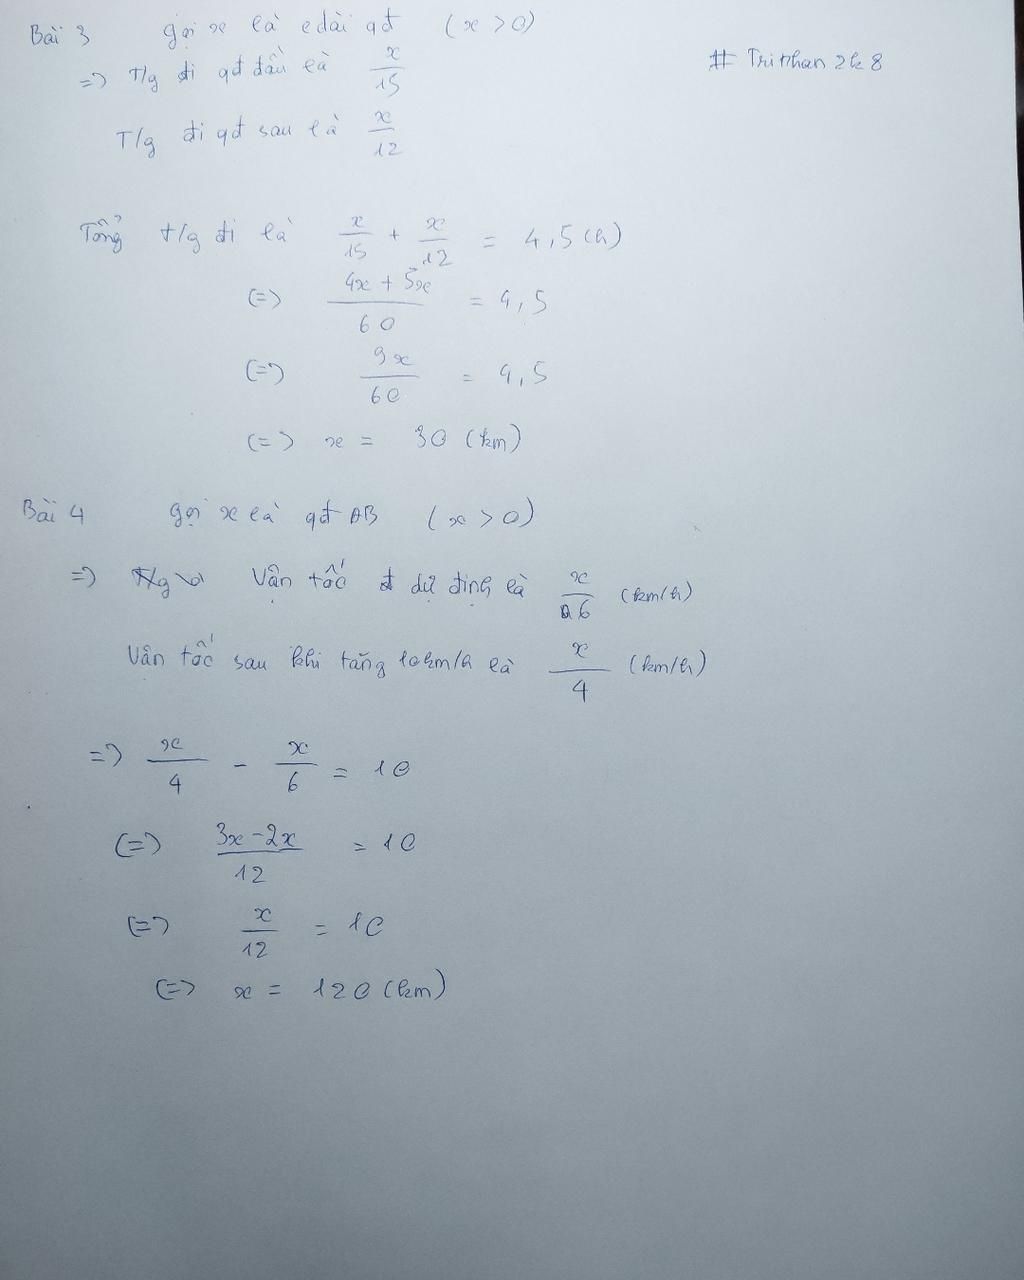 Bài 3 Gọi x là c dài qđ (x > 0)
# Trinhan 2k8
=> T/g đi qđ đầu là x/15
T/g đi qđ sau là x/12
Tổng t/g đi là x/15 + x/12 = 4,5 (h)
(=) (4x + 5x)/60 = 4,5
(=) 9x/60 = 4,5
(=) x = 30 (km)
Bài 4 Gọi x là qđ AB (x > 0)
=> Vận tốc dự định là x/6 (km/h)
Vận tốc sau khi tăng 10km/h là x/4 (km/h)
=> x/4 - x/6 = 10
(=) (3x - 2x)/12 = 10
(=) x/12 = 10
(=) x = 120 (km)